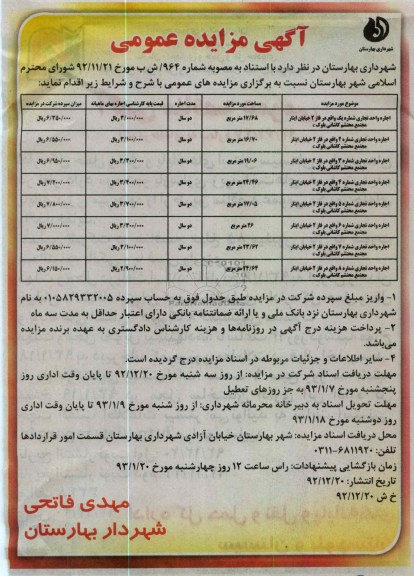 آگهی مزایده عمومی
شهرداری بهارستان
شهرداری بهارستان در نظر دارد با استناد به مصوبه شماره ۹۶۴/ش ب مورخ ۹۲/۱۱/۲۱ شورای محترم
اسلامی شهر بهارستان نسبت به برگزاری مزایده های عمومی با شرح و شرایط زیر اقدام نماید:
موضوع مورد مزایده مساحت مورد مزایده مدت اجاره قیمت پایه کارشناسی اجاره بهای ماهیانه میزان سپرده شرکت در مزایده
اجاره واحد تجاری شماره یک واقع در فاز ۲ خیابان ایثار مجتمع محتشم کاشانی بلوک ۵ ۱۷/۶۸ متر مربع دو سال ۳/۰۰۰/۰۰۰ ریال ۶/۳۵۰/۰۰۰ ریال
اجاره واحد تجاری شماره ۲ واقع در فاز ۲ خیابان ایثار مجتمع محتشم کاشانی بلوک ۵ ۱۶/۷۰ متر مربع دو سال ۳/۱۰۰/۰۰۰ ریال ۶/۵۵۰/۰۰۰ ریال
اجاره واحد تجاری شماره ۳ واقع در فاز ۲ خیابان ایثار مجتمع محتشم کاشانی بلوک ۵ ۱۹/۰۶ متر مربع دو سال ۳/۳۰۰/۰۰۰ ریال ۶/۹۵۰/۰۰۰ ریال
اجاره واحد تجاری شماره ۴ واقع در فاز ۲ خیابان ایثار مجتمع محتشم کاشانی بلوک ۵ ۲۴/۴۶ متر مربع دو سال ۳/۴۰۰/۰۰۰ ریال ۷/۲۰۰/۰۰۰ ریال
اجاره واحد تجاری شماره ۵ واقع در فاز ۲ خیابان ایثار مجتمع محتشم کاشانی بلوک ۵ ۱۷/۰۵ متر مربع دو سال ۳/۷۰۰/۰۰۰ ریال ۷/۸۰۰/۰۰۰ ریال
اجاره واحد تجاری شماره ۶ واقع در فاز ۲ خیابان ایثار مجتمع محتشم کاشانی بلوک ۵ ۲۶ متر مربع دو سال ۳/۳۰۰/۰۰۰ ریال ۷/۰۰۰/۰۰۰ ریال
اجاره واحد تجاری شماره ۷ واقع در فاز ۲ خیابان ایثار مجتمع محتشم کاشانی بلوک ۵ ۲۳/۶۲ متر مربع دو سال ۳/۱۰۰/۰۰۰ ریال ۶/۵۵۰/۰۰۰ ریال
اجاره واحد تجاری شماره ۸ واقع در فاز ۲ خیابان ایثار مجتمع محتشم کاشانی بلوک ۵ ۲۳/۶۴ متر مربع دو سال ۲/۹۰۰/۰۰۰ ریال ۶/۱۵۰/۰۰۰ ریال
۱- واریز مبلغ سپرده شرکت در مزایده طبق جدول فوق به حساب سپرده ۰۱۰۵۸۲۹۳۳۲۰۰۵ به نام
شهرداری بهارستان نزد بانک ملی و یا ارائه ضمانتنامه بانکی دارای اعتبار حداقل به مدت سه ماه
۲- پرداخت هزینه درج آگهی در روزنامه‌ها و هزینه کارشناس دادگستری به عهده برنده مزایده
می‌باشد.
۴- سایر اطلاعات و جزئیات مربوطه در اسناد مزایده درج گردیده است.
مهلت دریافت اسناد شرکت در مزایده: از روز سه شنبه مورخ ۹۲/۱۲/۲۰ تا پایان وقت اداری روز
پنجشنبه مورخ ۹۳/۱/۷ به جز روزهای تعطیل
مهلت تحویل اسناد به دبیرخانه محرمانه شهرداری: از روز شنبه مورخ ۹۳/۱/۹ تا پایان وقت اداری
روز دوشنبه مورخ ۹۳/۱/۱۸
محل دریافت اسناد مزایده: شهر بهارستان خیابان آزادی شهرداری بهارستان قسمت امور قراردادها
تلفن: ۶۸۱۱۹۲۰-۰۳۱۱
زمان بازگشایی پیشنهادات: راس ساعت ۱۲ روز چهارشنبه مورخ ۹۳/۱/۲۰
تاریخ انتشار: ۹۲/۱۲/۲۰
خ ش ۹۲/۱۲/۲۰
مهدی فاتحی
شهردار بهارستان